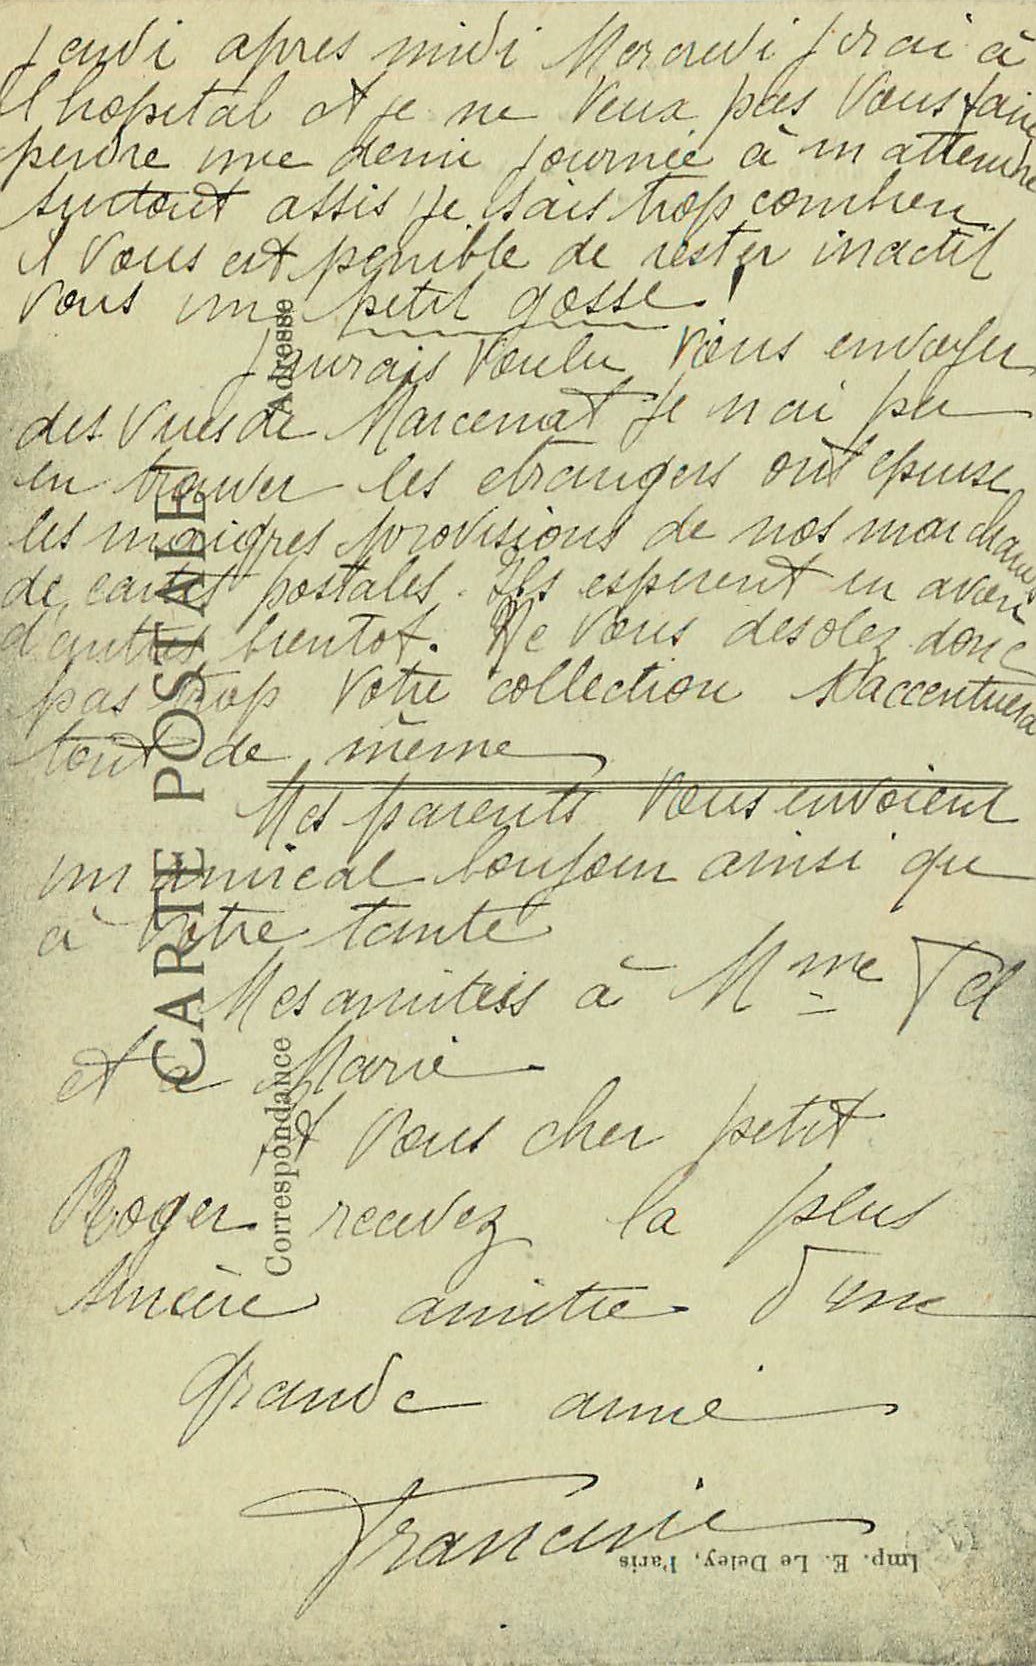 Jeudi après midi Mercredi j irai à
l hopital et je ne veux pas vous faire
perdre une demie journée à m attendre
surtout assis je sais trop combien
il vous est penible de rester inactif
vous un petit gosse!
J aurais voulu vous envoyer
des vues de Marcenat je n ai pu
en trouver les etrangers ont epuisé
les maigres provisions de nos marchands
de cartes postales. Ils esperent en avoir
d'autres bientot. Ne vous desolez donc
pas trop votre collection s'accentuera
tout de même
Mes parents vous envoient
un amical bonjour ainsi que
à votre tante
Mes amitiés à Mme
et à Marie
Et vous cher petit
Roger recevez la plus
sincère amitié d'une
grande amie
Francine
Adresse
CARTE POSTALE
Correspondance
Imp. E. Le Deley, Paris